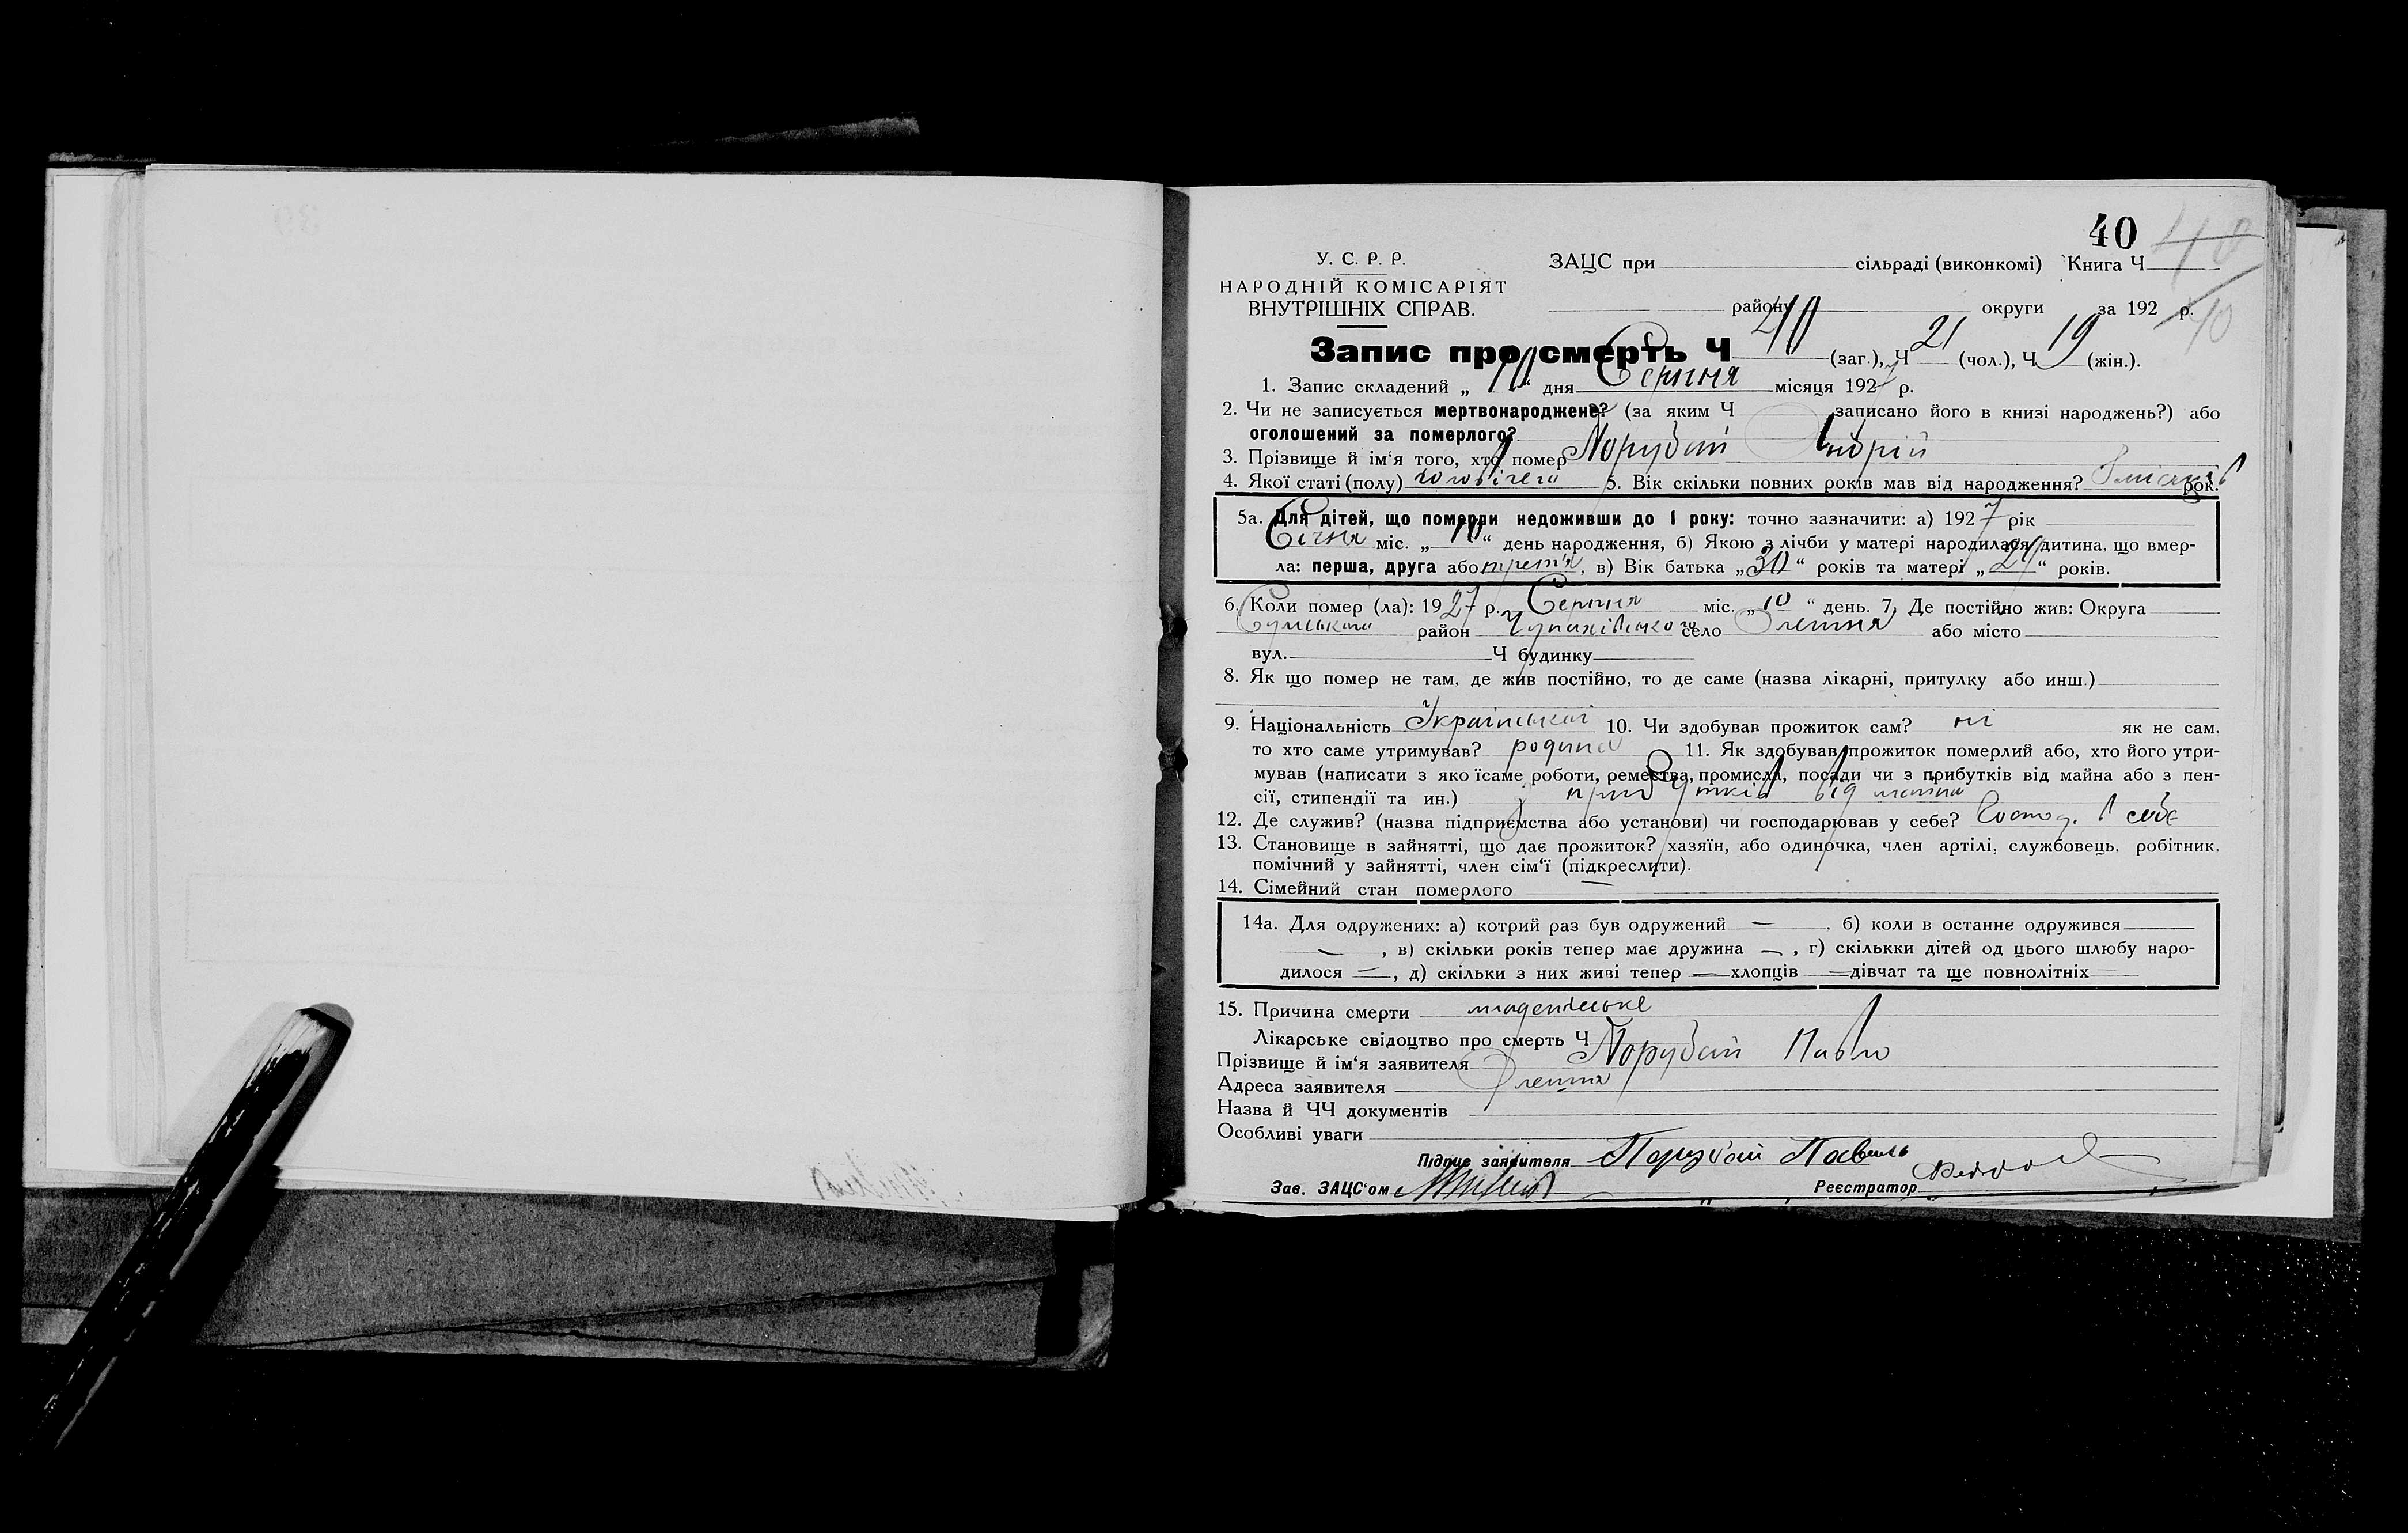 40 40
У. С. Р. Р. ЗАЦС при сільраді (виконкомі) Книга Ч
НАРОДНІЙ КОМІСАРІЯТ
ВНУТРІШНІХ СПРАВ. району округи за 192 р.
40
Запис про смерть Ч 40 (заг.), Ч 21 (чол.), Ч 19 (жін.).
1. Запис складений „ 10 “ дня Серпня місяця 1927 р.
2. Чи не записується мертвонароджене? (за яким Ч записано його в книзі народжень?) або
оголошений за померлого?
3. Прізвище й ім‘я того, хто помер Порубай Андрій
4. Якої статі (полу) чоловічего 5. Вік скільки повних років мав від народження? місяців рок.
5а. Для дітей, що померли недоживши до 1 року: точно зазначити: а) 1927 рік
Січня міс. „ 10 “ день народження, б) Якою з лічби у матері народилася дитина, що вмер-
ла: перша, друга або третя, в) Вік батька „ 30 “ років та матері „ “ років.
6. Коли помер (ла): 1927 р. Серпня міс. „ 10 “ день. 7. Де постійно жив: Округа
Сумського район Чупахівського село Олешня або місто
вул. Ч будинку
8. Як що помер не там, де жив постійно, то де саме (назва лікарні, притулку або инш.)
9. Національність Української 10. Чи здобував прожиток сам? ні як не сам.
то хто саме утримував? родина 11. Як здобував прожиток померлий або, хто його утри-
мував (написати з яко їсаме роботи, ремества, промисла, посади чи з прибутків від майна або з пен-
сії, стипендії та ин.) з прибутків від майна
12. Де служив? (назва підприємства або установи) чи господарював у себе? Господ. в себе
13. Становище в зайнятті, що дає прожиток? хазяїн, або одиночка, член артілі, службовець, робітник.
помічний у зайнятті, член сім‘ї (підкреслити).
14. Сімейний стан померлого —
14а. Для одружених: а) котрий раз був одружений — , б) коли в останнє одружився
— , в) скільки років тепер має дружина — , г) скількки дітей од цього шлюбу наро-
дилося — , д) скільки з них живі тепер — хлопців — дівчат та ще повнолітніх —
15. Причина смерти младенчеське
Лікарське свідоцтво про смерть Ч
Прізвище й ім‘я заявителя Порубай Павло
Адреса заявителя Олешня
Назва й ЧЧ документів
Особливі уваги
Підпис заявителя Порубай Павель
Зав. ЗАЦС‘ом Реєстратор